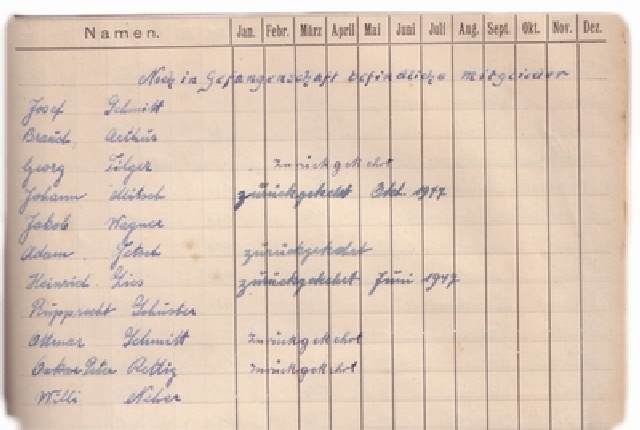 Namen. Jan. Febr. März April Mai Juni Juli Aug. Sept. Okt. Nov. Dez.
Noch in Gefangenschaft befindliche Mitglieder
Josef Schmitt
Brauch, Arthur
Georg Zurückgekehrt
Johann zurückgekehrt Okt. 1947
Jakob Wagner
Adam zurückgekehrt
Heinrich zurückgekehrt Juni 1947
Rupprecht Schuster
Ottmar Schmitt Zurückgekehrt
Peter Rettig Zurückgekehrt
Willi